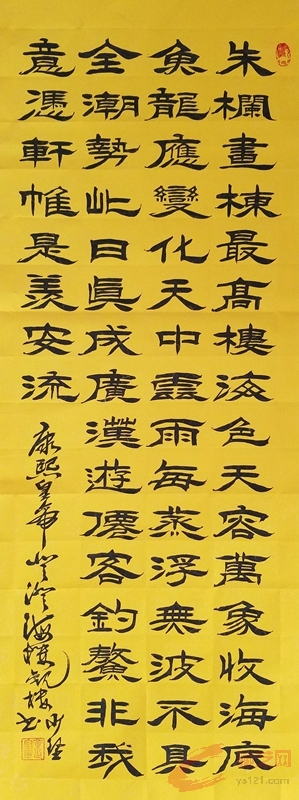 朱欄畫棟最高樓海色天容萬象收海底
魚龍應變化天中雲雨每蒸浮無波不具
全潮勢此日眞成廣漢遊僊客釣鰲非我
意憑軒惟是羨安流
康熙皇帝登澄海樓觀
ys121.com